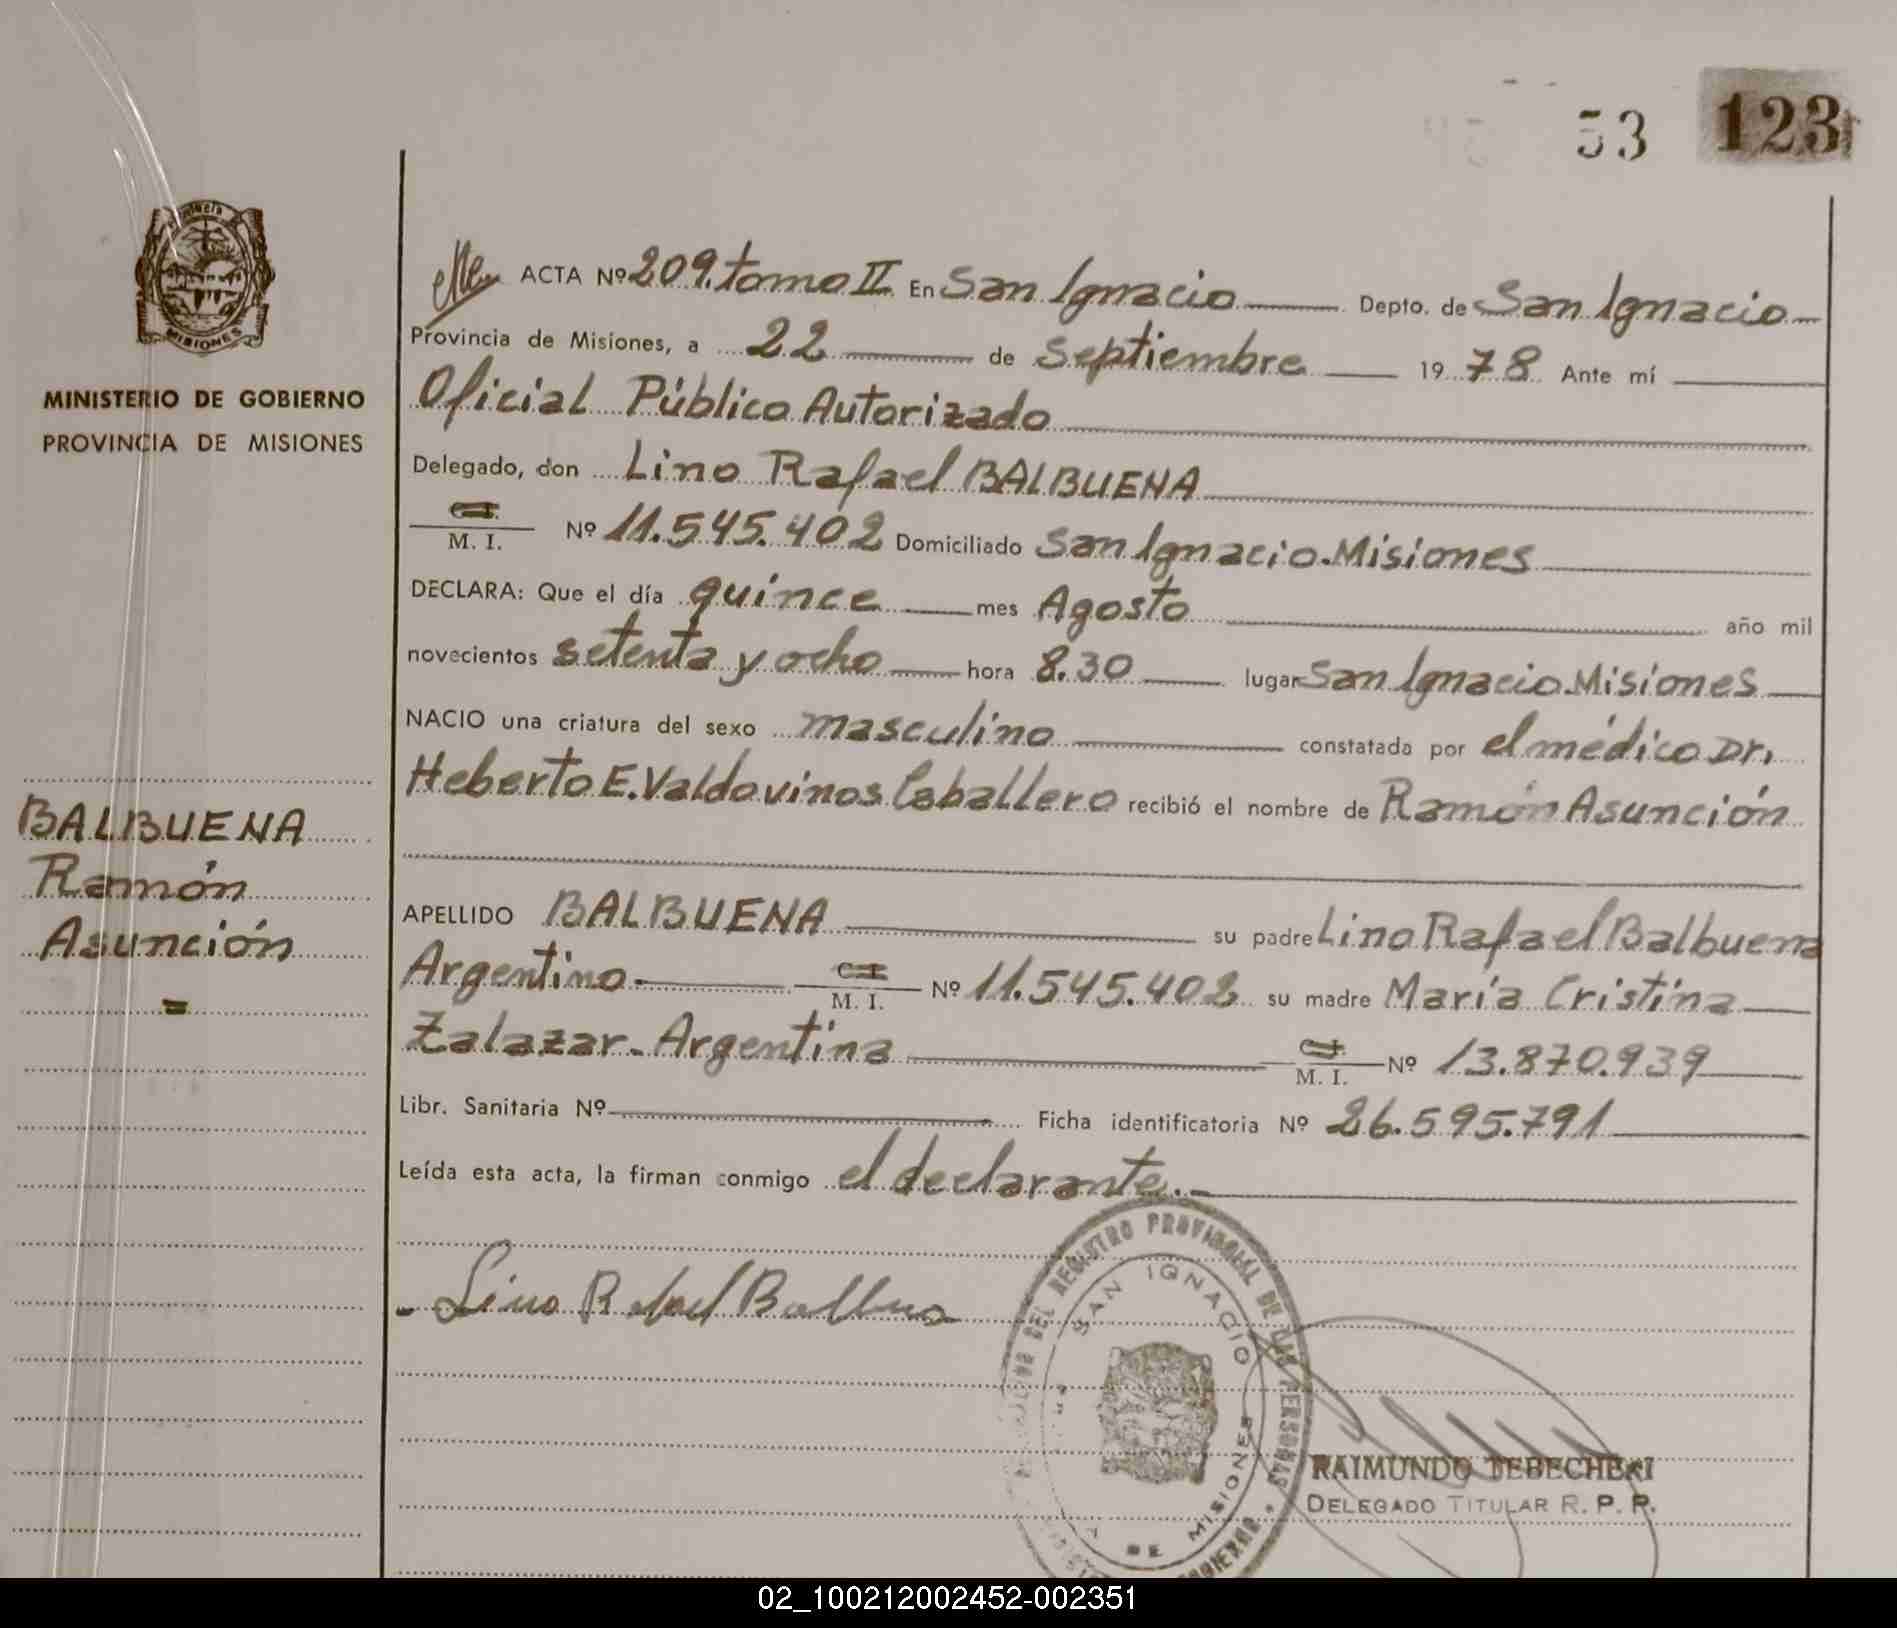 53 123
MISIONES
MINISTERIO DE GOBIERNO
PROVINCIA DE MISIONES
BALBUENA
Ramón
Asunción
ACTA Nº 209. tomo II En San Ignacio Depto. de San Ignacio
Provincia de Misiones, a 22 de Septiembre 1978 Ante mí
Oficial Público Autorizado
Delegado, don Lino Rafael BALBUENA
C. I.
M. I. Nº 11.545.402 Domiciliado San Ignacio. Misiones
DECLARA: Que el día quince mes Agosto año mil
novecientos setenta y ocho hora 8.30 lugar San Ignacio. Misiones
NACIO una criatura del sexo masculino constatada por el médico Dr.
Heberto E. Valdovinos Caballero recibió el nombre de Ramón Asunción
APELLIDO BALBUENA su padre Lino Rafael Balbuena
Argentino C. I. M. I. Nº 11.545.402 su madre María Cristina
Zalazar. Argentina C. I. M. I. Nº 13.870.939
Libr. Sanitaria Nº Ficha identificatoria Nº 26.595.791
Leída esta acta, la firman conmigo el declarante.
Lino Rafael Balbuena
DEL REGISTRO PROVINCIAL DE LAS PERSONAS
SAN IGNACIO
DE MISIONES
RAIMUNDO TEBECHERI
DELEGADO TITULAR R. P. P.
02_100212002452-002351